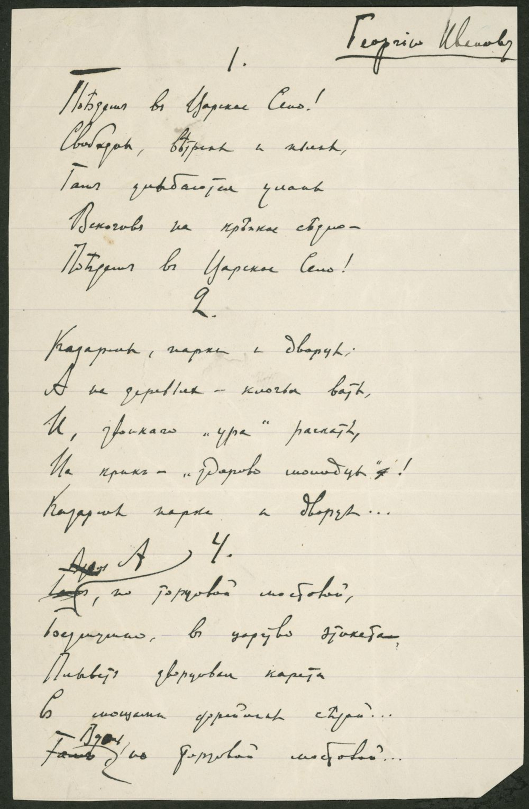 Георгію Иванову
1.
Поѣдемъ въ Царское Село!
Свободны, вѣтрены и пьяны,
Тамъ улыбаются уланы
Вскочивъ на крѣпкое сѣдло —
Поѣдемъ въ Царское Село!
2.
Казармы, парки и дворцы,
А на деревьяхъ — клочья ваты,
И, звонкаго „ура“ раскаты,
На крикъ — „здорово молодцы“!
Казармы парки и дворцы...
4.
А
, по торцовой мостовой,
въ царство этикета,
Плыветъ дворцовая карета
Съ мощами фрейлины сѣдой...
Вдоль
Тамъ по торцовой мостовой...